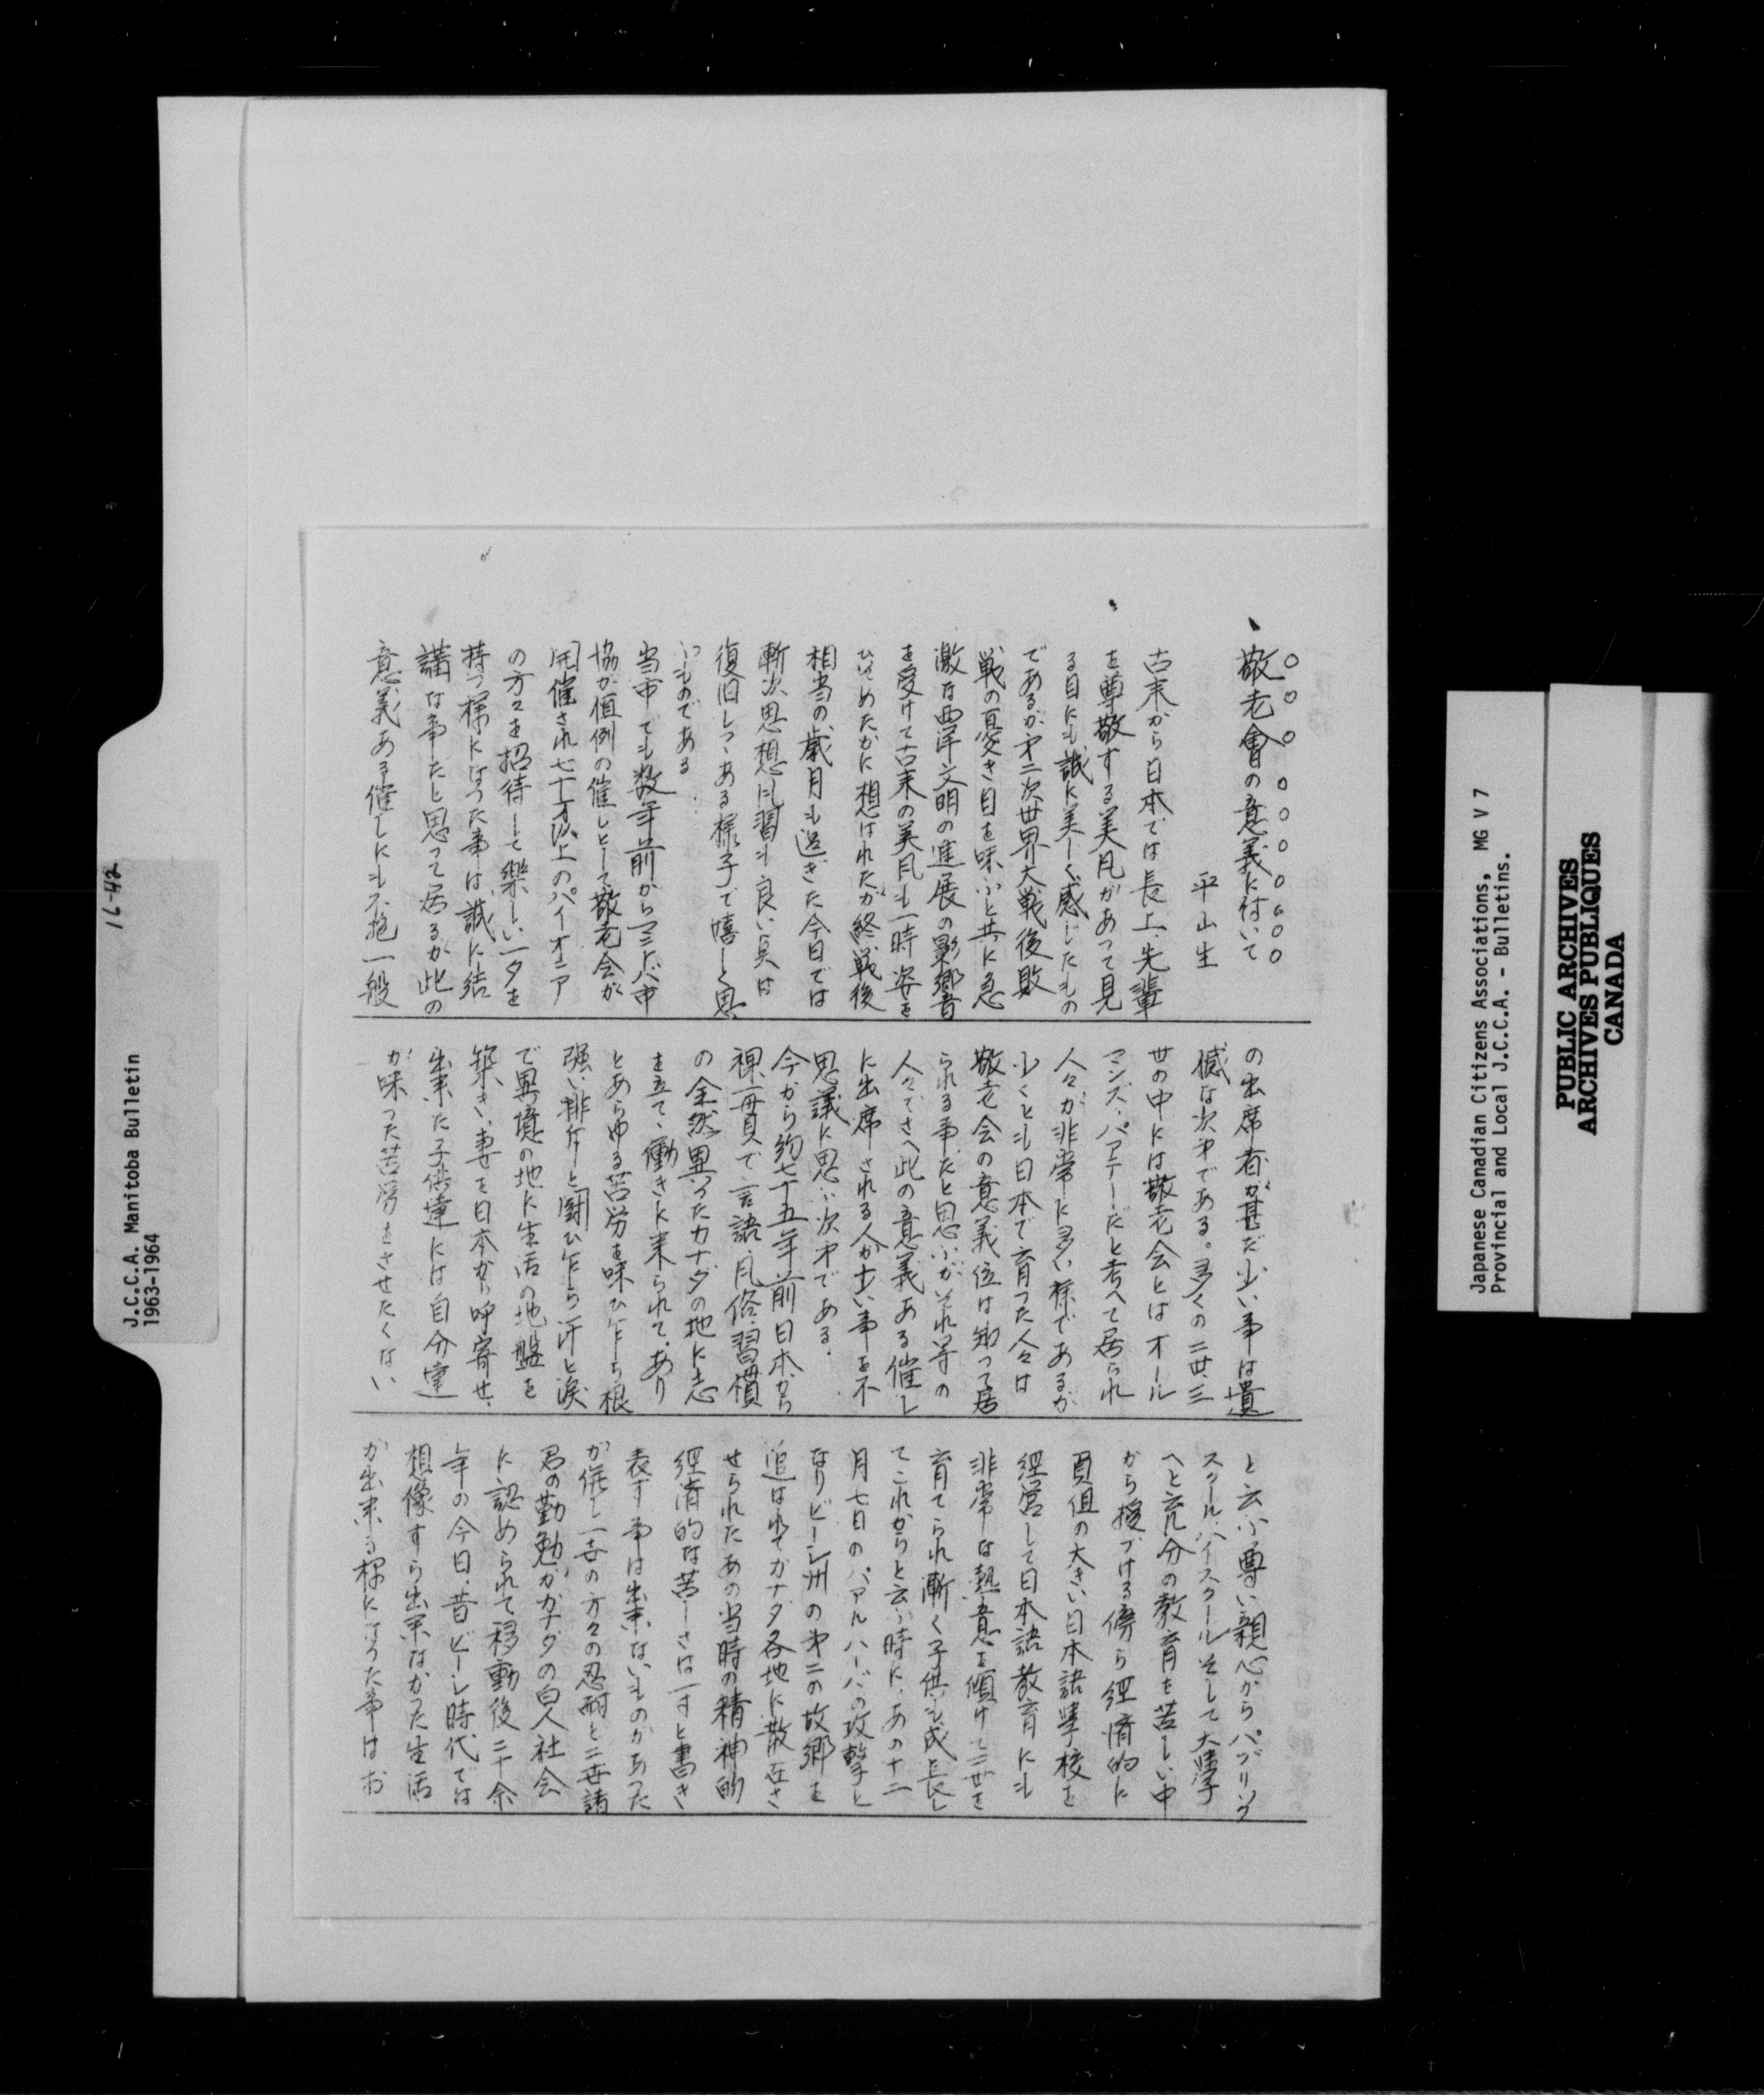 敬老會の意義に付いて
平山生
古来から日本では長上、先輩
を尊敬する美風があって見
る目にも誠に美しく感じたもの
であるが才二次世界大戦後敗
戦の憂き目を味ふと共に急
激な西洋文明の進展の影響
を受けて古来の美風も一時姿を
ひそめたかに想はれたが終戦後
相当の歳月も過ぎた今日では
漸次思想風習も良い点は
復旧しつゝある様子で嬉しく思
ふものである
当市でも数年前からマニトバ市
協が恒例の催しとして敬老会が
開催され七十才以上のパイオニア
の方々を招待して楽しい一夕を
持つ様になった事は誠に結
講な事だと思って居るが此の
意義ある催しにも不抱一般
の出席者が甚だ少い事は遺
憾な次才である。多くの二世、三
世の中には敬老会とはオール
マンズ、パアテーだと考へて居られ
人々が非常に多い様であるが
少くとも日本で育った人々は
敬老会の意義位は知って居
られる事だと思ふがそれ等の
人々でさへ此の意義ある催し
に出席される人が少い事を不
思議に思ふ次才である.
今から約七十五年前日本から
裸一貫で言語、風俗、習慣
の全然異ったカナダの地に志
を立て、働きに来られて、あり
とあらゆる苦労を味ひ乍ら根
強い排斥と闘ひ乍ら汗と涙
で異境の地に生活の地盤を
築き、妻を日本から呼寄せ、
出来た子供達には自分達
が味った苦労をさせたくない
と云ふ尊い親心からパブリック
スクール、ハイスクールそして大學
へと充分の教育を苦しい中
から授づける傍ら経済的に
負但の大きい日本語學校を
経営して日本語教育にも
非常な熱意を傾けて二世を
育てられ漸く子供も成長し
てこれからと云ふ時に、あの十二
月七日のパアルハーバの攻撃と
なりビーシ州の才二の故郷を
追はれてカナダ各地に散在さ
せられたあの当時の精神的
経済的な苦しさは一寸と書き
表す事は出来ないものがあった
が併し一世の方々の忍耐と二世諸
君の勤勉がカナダの白人社会
に認められて移動後二十余
年の今日、昔ビーシ時代では
想像すら出来なかった生活
が出来る様になった事はお
16-42
J.C.C.A. Manitoba Bulletin
1963-1964
Japanese Canadian Citizens Associations, MG V 7
Provincial and Local J.C.C.A. - Bulletins.
PUBLIC ARCHIVES
ARCHIVES PUBLIQUES
CANADA